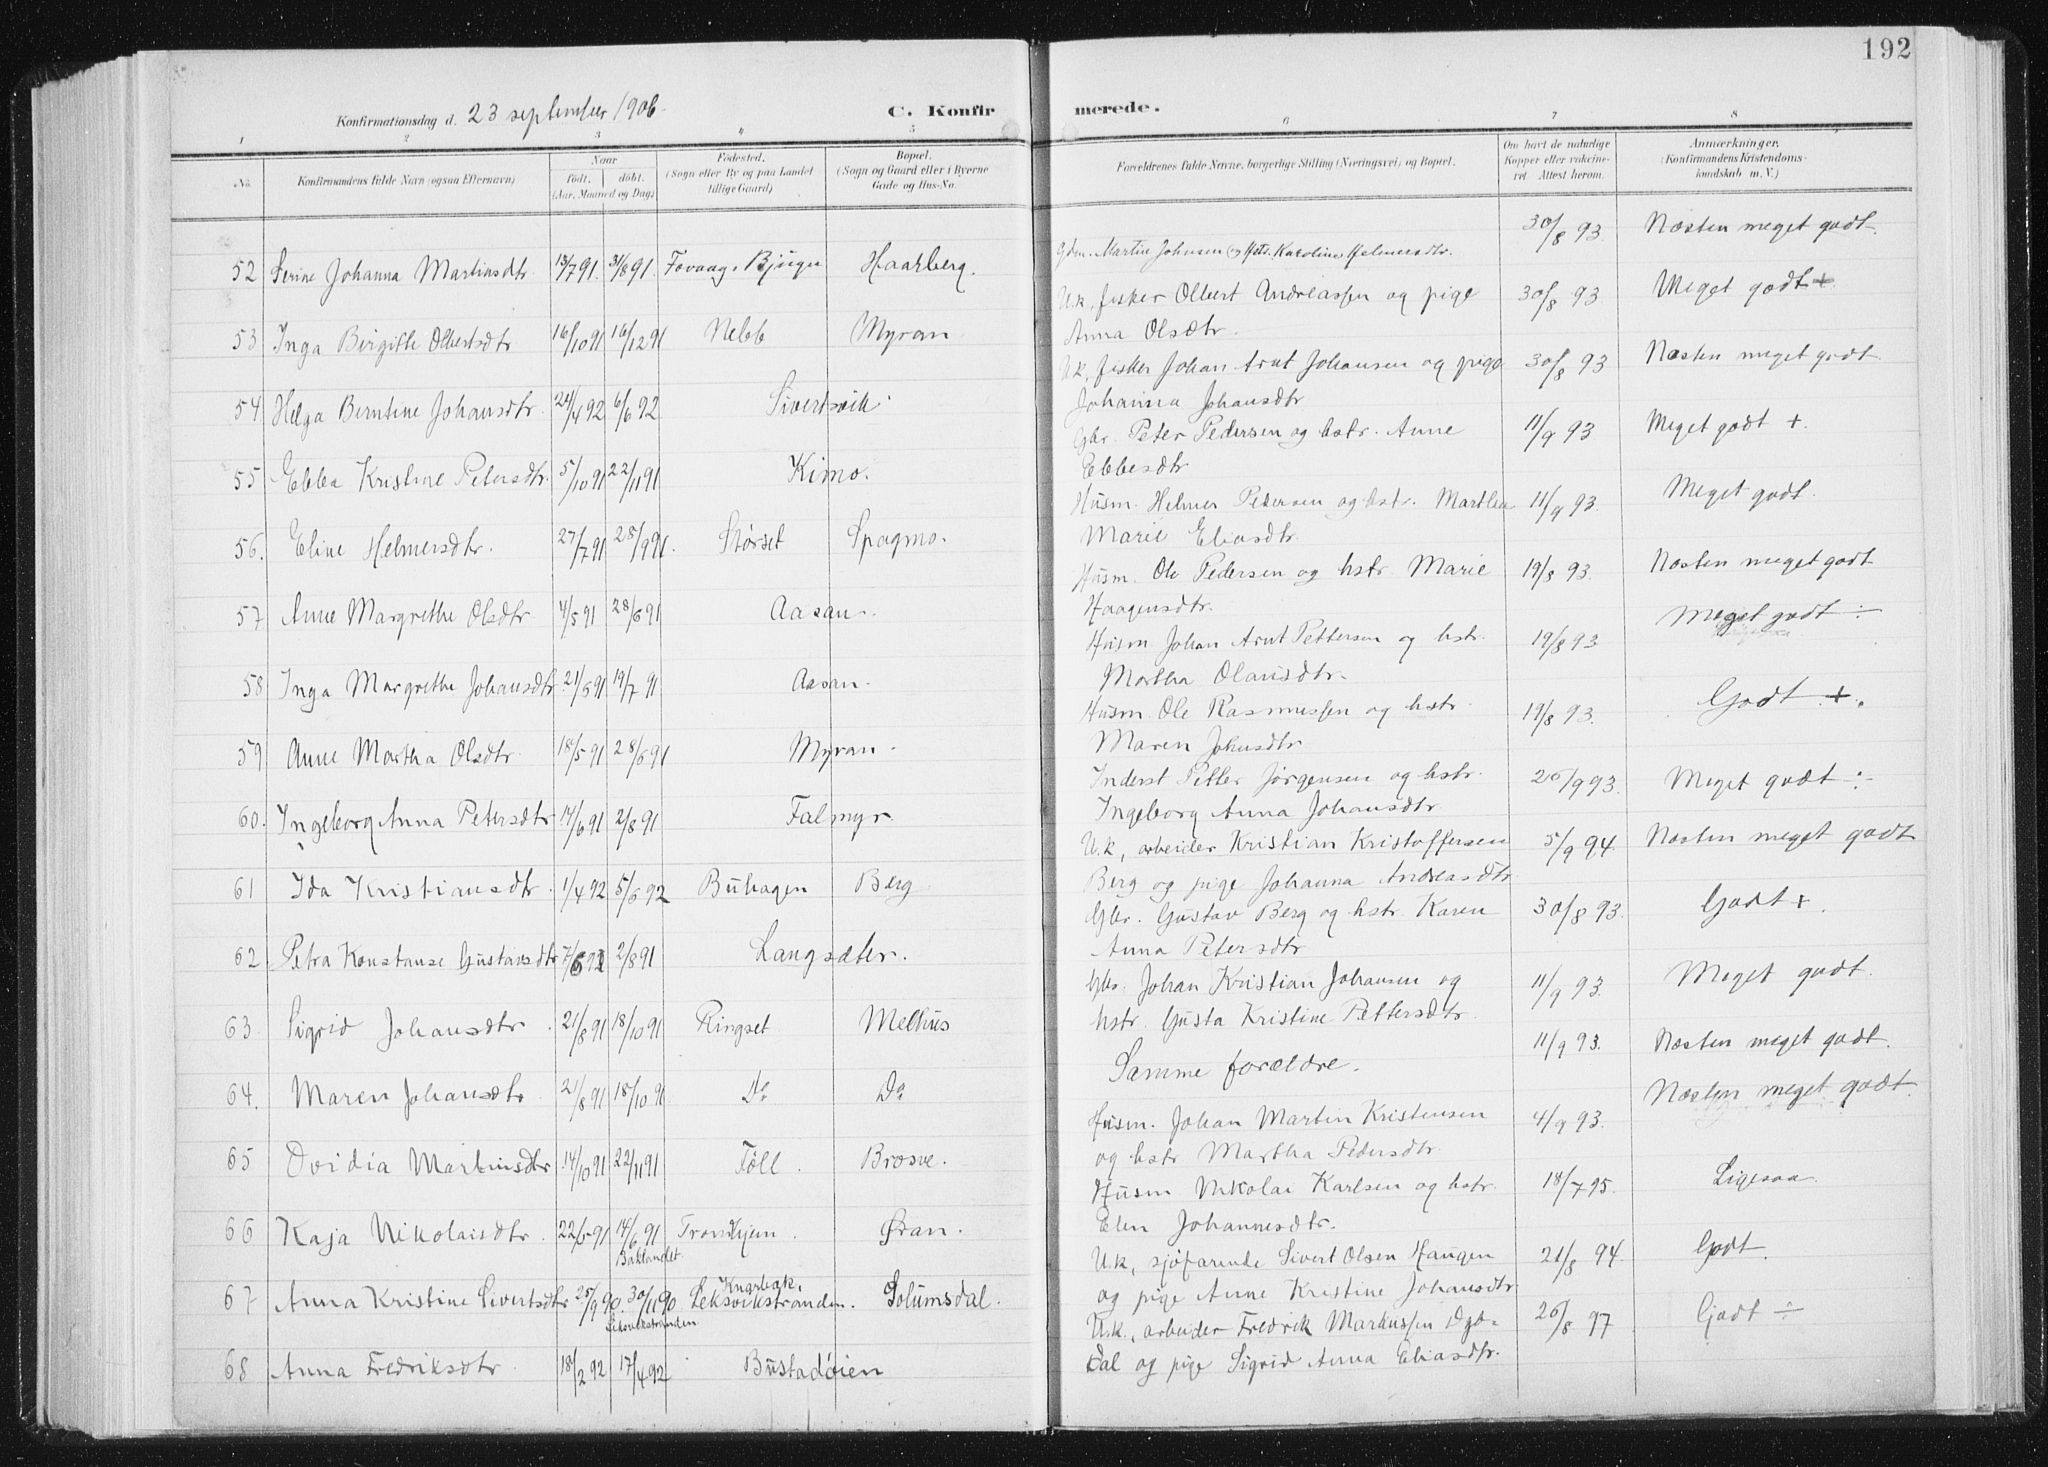 192
Konfirmationsdag d. 23 september 1906.
C. Konfirmerede.
1 2 3 4 5 6 7 8
No.
Konfirmandens fulde Navn (ogsaa Efternavn)
Naar født. døbt. (Aar, Maaned og Dag)
Fødested. (Sogn eller By og paa Landet tillige Gaard)
Bopæl. (Sogn og Gaard eller i Byerne Gade og Hus-No.
Forældrenes fulde Navne, borgerlige Stilling (Næringsvei) og Bopæl.
Om havt de naturlige Kopper eller vaccineret Attest herom.
Anmærkninger. (Konfirmandens Kristendomskundskab m. V.)
52 Serine Johanna Martinsdtr. 13/7 91. 31/8 91. Fovaag. Bjugn Haarberg. Gdm. Martin Johnsen og Hst. Karoline Helmersdtr. 30/8 93. Næsten meget godt.
53 Inga Birgitte Olbertsdtr 16/10 91 16/12 91 Nebb Myran. U.k, fisker Olbert Andreassen og pige
Anna Olsdtr. 30/8 93 Meget godt +
54. Helga Berntine Johansdtr. 24/4 92 6/6 92 Sivertsvik. U.k, fisker Johan Arnt Johansen og pige
Johanna Johansdtr 30/8 93 Næsten meget godt.
55 Ebba Kristine Petersdtr. 5/10 91 22/11 91 Kimo. Gbr. Peter Pedersen og hstr. Anne
Ebbesdtr 11/9 93 Meget godt +.
56. Eline Helmersdtr. 27/7 91 28/9 91. Størset Spagmo. Husm. Helmer Pedersen og hstr. Marthea
Marie Eliasdtr. 11/9 93. Meget godt.
57. Anne Margrethe Olsdtr. 4/5 91 28/6 91 Aasan. Husm. Ole Pedersen og hstr. Marie
Haagensdtr. 19/8 93. Næsten meget godt
58 Inga Margrethe Johansdtr. 21/6 91 19/7 91 Aasan. Husm. Johan Arnt Pettersen og hstr.
Martha Olausdtr. 19/8 93 Meget godt ÷
59 Anne Martha Olsdtr. 18/5 91 28/6 91 Myran. Husm. Ole Rasmussen og hstr.
Maren Johnsdtr 19/8 93. Godt +.
60. Ingeborg Anna Petersdtr 14/6 91 2/8 91 Falmyr. Inderst Petter Jørgensen og hstr.
Ingeborg Anna Johansdtr. 26/9 93. Meget godt ÷
61 Ida Kristiansdtr. 1/4 92 5/6 92 Buhagen Berg. U.k, arbeider Kristian Kristoffersen
Berg og pige Johanna Andreasdtr. 5/9 94. Næsten meget godt
62 Petra Konstanse Gustavsdtr 7/6 91 2/8 91 Langsæter. Gbr. Gustav Berg og hstr. Karen
Anna Petersdtr 30/8 93. Godt +.
63. Sigrid Johansdtr. 21/8 91 18/10 91 Ringset Melhus Gbr. Johan Kristian Johansen og
hstr. Gusta Kristine Pettersdtr. 11/9 93. Meget godt.
64. Maren Johansdtr. 21/8 91 18/10 91 Do Do Samme forældre. 11/9 93. Næsten meget godt.
65 Ovidia Martinsdtr 14/10 91 22/11 91 Føll. Brosve. Husm. Johan Martin Kristensen
og hstr. Martha Pedersdtr. 4/9 93. Næsten meget godt.
66 Kaja Nikolaisdtr. 22/5 91 14/6 91 Baklandet. Trondhjem. Øran. Husm Nikolai Karlsen og hstr.
Elen Johannesdtr. 18/7 95. Ligesaa.
67 Anna Kristine Sivertsdtr 25/9 90. 30/11 90 Leksvikstranden Knarbak, Leksvikstranden. Solumsdal. U.k, sjøfarende Sivert Olsen Haugen
og pige Anne Kristine Johansdtr 21/8 94. Godt.
68 Anna Fredriksdtr. 18/2 92 17/4 92 Bustadøien U.k., arbeider Fredrik Markussen Dybdal og pige Sigrid Anna Eliasdtr. 26/8 97 Godt ÷